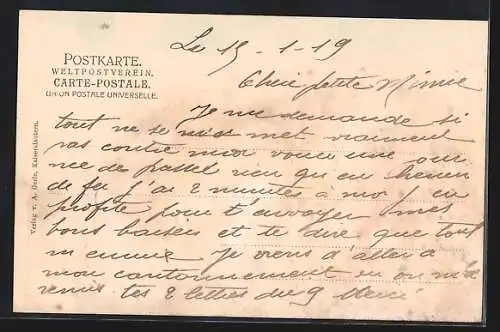 Le 15-1-19
POSTKARTE.
WELTPOSTVEREIN.
CARTE-POSTALE.
UNION POSTALE UNIVERSELLE.
Chere petite Mimie
Je me demande si
tout ne se met vraiment
pas contre moi voici une
de rien qu en chemin
de fer j'ai 2 minutes à moi j'en
profite pour t'envoyer mes
bons baisers et te dire que tout
m ennuie Je viens d'aller à
mon cantonnement on m'a
remis tes 2 lettres du 9 Merci
Verlag v. A. Kaiserslautern.